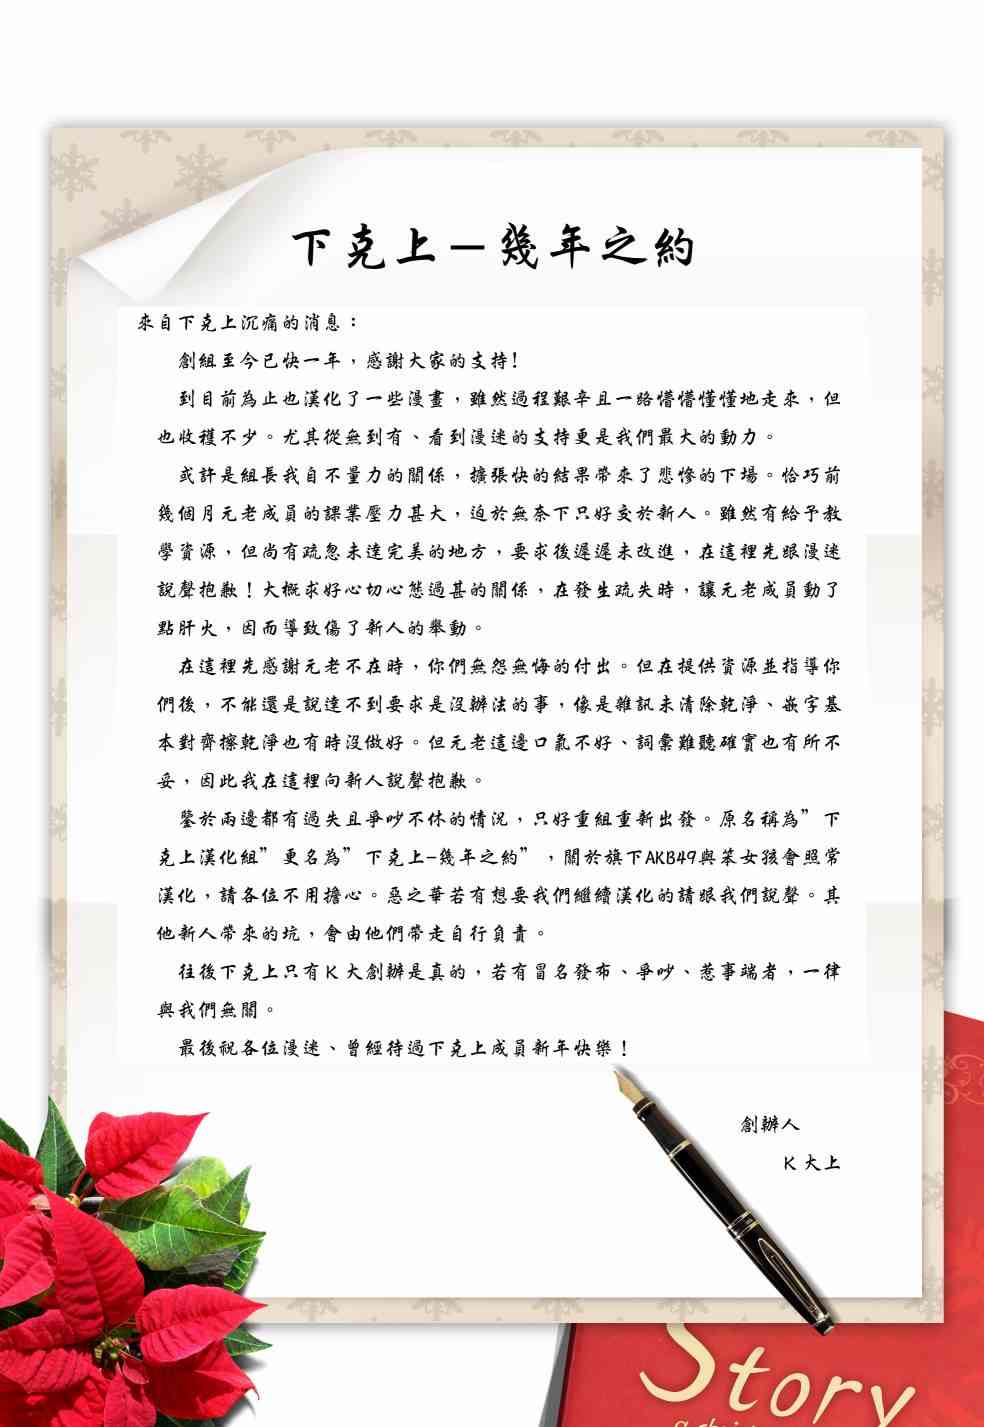 下克上－幾年之約
來自下克上沉痛的消息：
創組至今已快一年，感謝大家的支持!
到目前為止也漢化了一些漫畫，雖然過程艱辛且一路懵懵懂懂地走來，但
也收穫不少。尤其從無到有、看到漫迷的支持更是我們最大的動力。
或許是組長我自不量力的關係，擴張快的結果帶來了悲慘的下場。恰巧前
幾個月元老成員的課業壓力甚大，迫於無奈下只好交於新人。雖然有給予教
學資源，但尚有疏忽未達完美的地方，要求後遲遲未改進，在這裡先跟漫迷
說聲抱歉！大概求好心切心態過甚的關係，在發生疏失時，讓元老成員動了
點肝火，因而導致傷了新人的舉動。
在這裡先感謝元老不在時，你們無怨無悔的付出。但在提供資源並指導你
們後，不能還是說達不到要求是沒辦法的事，像是雜訊未清除乾淨、嵌字基
本對齊擦乾淨也有時沒做好。但元老這邊口氣不好、詞彙難聽確實也有所不
妥，因此我在這裡向新人說聲抱歉。
鑒於兩邊都有過失且爭吵不休的情況，只好重組重新出發。原名稱為”下
克上漢化組”更名為”下克上-幾年之約”，關於旗下AKB49與笨女孩會照常
漢化，請各位不用擔心。惡之華若有想要我們繼續漢化的請跟我們說聲。其
他新人帶來的坑，會由他們帶走自行負責。
往後下克上只有K大創辦是真的，若有冒名發布、爭吵、惹事端者，一律
與我們無關。
最後祝各位漫迷、曾經待過下克上成員新年快樂！
創辦人
K大上
Story